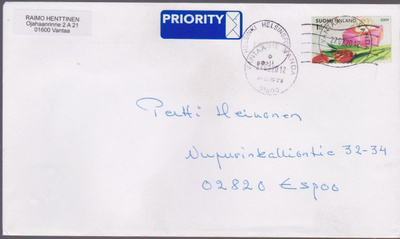 RAIMO HENTTINEN
Ojahaanrinne 2 A 21
01600 Vantaa
PRIORITY
SUOMI FINLAND
Pertti Heinonen
Nupurinkalliontie 32-34
02820 Espoo